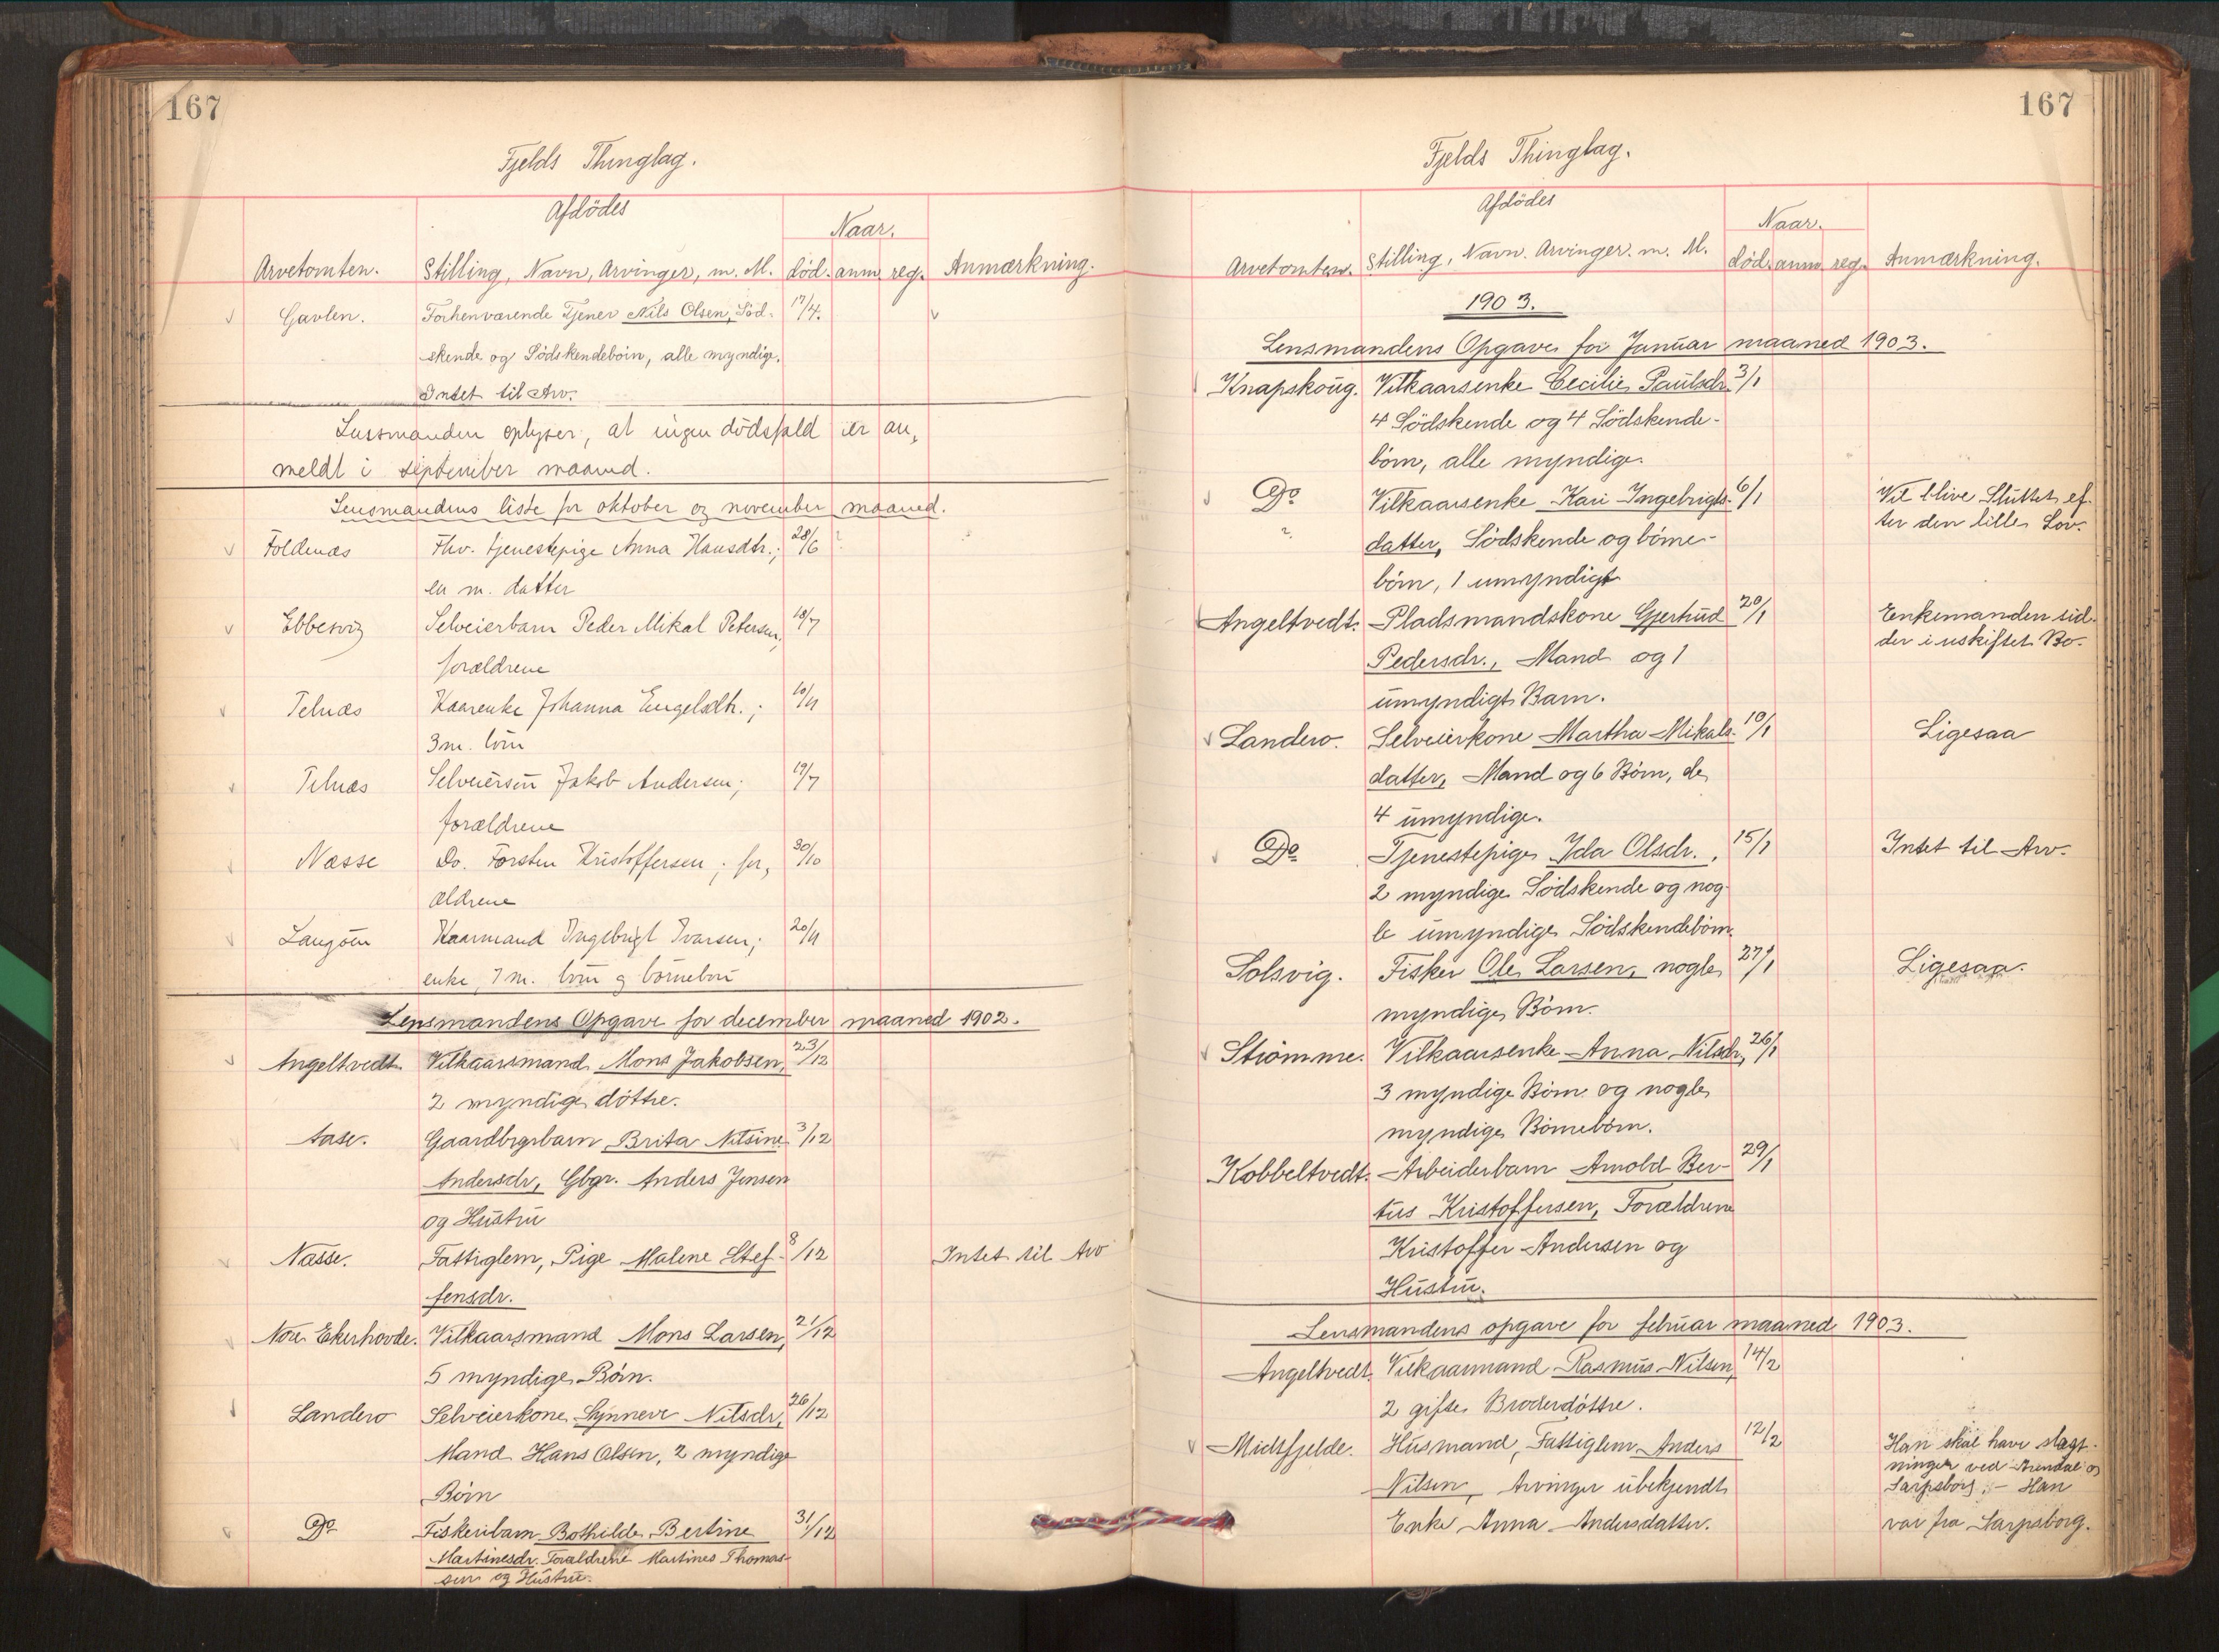 167
Fjelds Thinglag.
Afdödes
Naar.
Arvetomten. Stilling, Navn, Arvinger, m. M. död. anm. reg. Anmærkning.
Gavlen. Forhenværende Tjener Nils Olsen, Söd- 17/4.
skende og Södskendebörn, alle myndige.
Intet til Arv.
Lensmanden oplyser, at ingen dödsfald er an,
meldt i september maaned.
Lensmandens liste for oktober og november maaned.
Foldnæs Fhv. tjenestepige Anna Hansdtr.; 28/6 ?
en m. datter
Ebbesvig Selveierbarn Peder Mikal Petersen, 18/7
forældrene
Telnæs Kaarenke Johanna Engelsdtr.; 10/11
3 m. börn
Telnæs Selveiersön Jakob Andersen; 19/7
forældrene
Næsse Do. Torsten Kristoffersen; for, 30/10
ældrene
Langöen Kaarmand Ingebrigt Ivarsen; 20/11
enke, 7 m. börn og börnebörn
Lensmandens Opgave for december maaned 1902.
Angeltvedt. Vilkaarsmand Mons Jakobsen, 23/12
2 myndige döttre.
Aase. Gaardbrgrbarn Brita Nilsine 3/12
Andersdr, Gbgr. Anders Jensen
og Hustru
Næsse. Fattiglem, Pige Malene Stef- 8/12 Intet til Arv
fensdr.
Nore Ekerhovde. Vilkaarsmand Mons Larsen, 21/12
5 myndige Börn.
Landero Selveierkone Synneve Nilsdr, 26/12
Mand Hans Olsen, 2 myndige
Börn
Do Fiskeribarn Bothilde Bertine 31/12
Martinesdr. Forældrene Martines Thomas-
sen og Hustru.
167
Fjelds Thinglag.
Afdödes
Naar.
Arvetomten. Stilling, Navn. Arvinger. m. M. död. anm. reg. Anmærkning.
1903.
Lensmandens Opgave for Januar maaned 1903.
Knapskoug. Vilkaarsenke Cecilie Paulsdr. 3/1
4 Södskende og 4 Södskende-
börn, alle myndige.
Do Vilkaarsenke Kari Ingebrigts- 6/1 Vil blive Sluttet ef-
datter, Södskende og börne- ter den lille Lov.
börn, 1 umyndigt
Angeltvedt. Pladsmandskone Gjertrud 20/1 Enkemanden sid-
Pedersdr., Mand og 1 der i uskiftet Bo.
umyndigt Barn.
Landero. Selveierkone Martha Mikals- 10/1 Ligesaa
datter, Mand og 6 Börn, de
4 umyndige.
Do Tjenestepige Ida Olsdr., 15/1 Intet til Arv.
2 myndige Södskende og nog-
le umyndige Södskendebörn.
Solsvig. Fisker Ole Larsen, nogle 27/1 Ligesaa.
myndige Börn.
Strömme. Vilkaarsenke Anna Nilsdr, 26/1
3 myndige Börn og nogle
myndige Börnebörn.
Kobbeltvedt. Arbeiderbarn Arnold Ber- 29/1
tus Kristoffersen, Forældrene
Kristoffer Andersen og
Hustru.
Lensmandens opgave for februar maaned 1903.
Angeltvedt. Vilkaarmand Rasmus Nilsen, 14/2
2 gifte Broderdöttre.
Midtfjelde. Husmand, Fattiglem Anders 12/2 Han skal have slægt-
Nilsen, Arvinger ubekjendt ninger ved Arendal og
Sarpsborg. – Han
Enke Anna Andersdatter. var fra Sarpsborg.